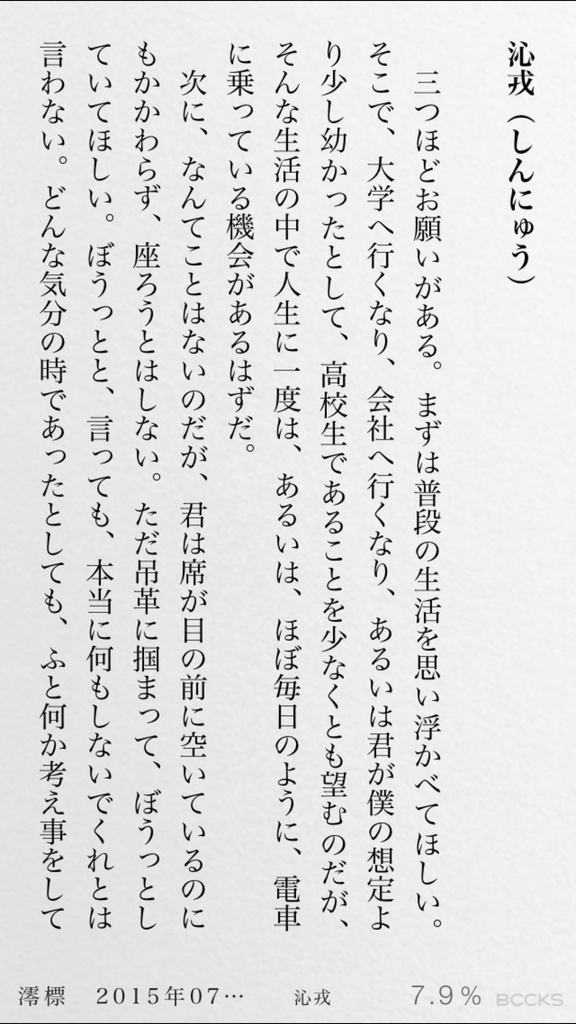 沁戎（しんにゅう）
三つほどお願いがある。まずは普段の生活を思い浮かべてほしい。
そこで、大学へ行くなり、会社へ行くなり、あるいは君が僕の想定よ
り少し幼かったとして、高校生であることを少なくとも望むのだが、
そんな生活の中で人生に一度は、あるいは、ほぼ毎日のように、電車
に乗っている機会があるはずだ。
次に、なんてことはないのだが、君は席が目の前に空いているのに
もかかわらず、座ろうとはしない。ただ吊革に掴まって、ぼうっとし
ていてほしい。ぼうっとと、言っても、本当に何もしないでくれとは
言わない。どんな気分の時であったとしても、ふと何か考え事をして
澪標 2015年07… 沁戎 7.9% BCCKS